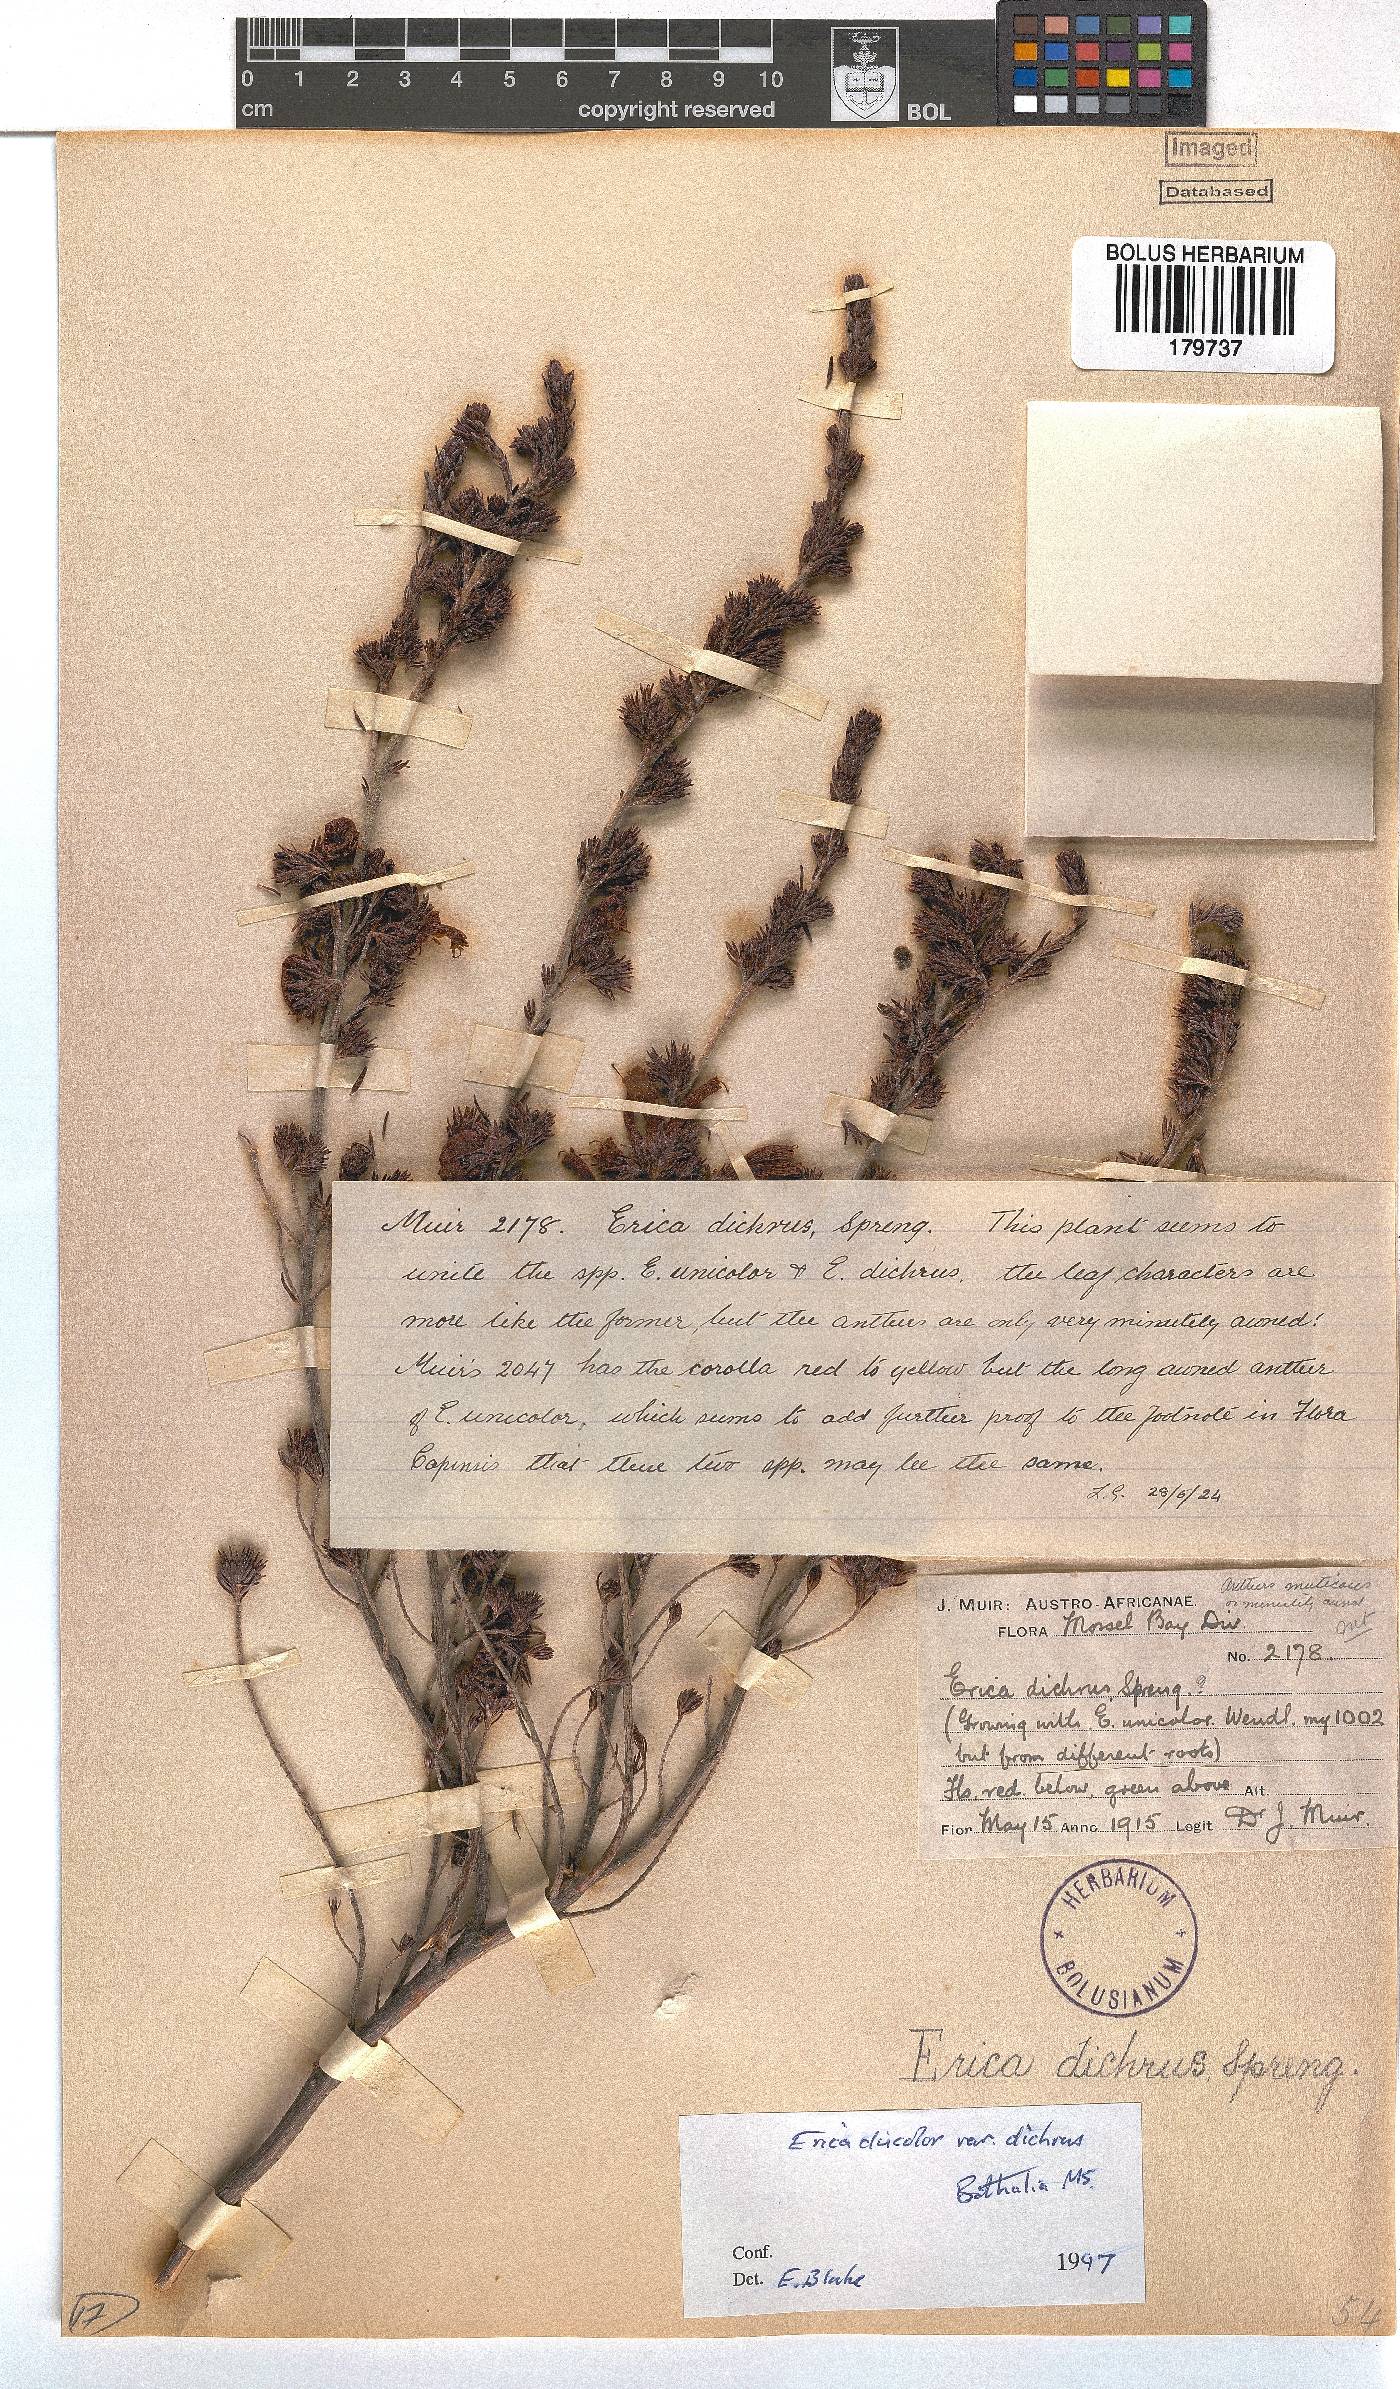 0 1 2 3 4 5 6 7 8 9 10
cm copyright reserved BOL
Imaged
Databased
BOLUS HERBARIUM
179737
Muir 2178. Erica dichrus, Spreng. This plant seems to
unite the spp. E. unicolor & E. dichrus, the leaf characters are
more like the former, but the anthers are only very minutely awned!
Muir's 2047 has the corolla red to yellow but the long awned anther
of E. unicolor, which seems to add further proof to the footnote in Flora
Capensis that these two spp. may be the same.
L.G. 28/6/24
Anthers muticous
or minutely awned
J. MUIR: AUSTRO-AFRICANAE.
FLORA Mossel Bay Div
No. 2178.
Erica dichrus, Spreng.?
(Growing with E. unicolor. Wendl. my 1002
but from different roots)
Fls. red below, green above Alt.
Flor May 15 Anno 1915 Legit Dr J. Muir.
HERBARIUM
BOLUSIANUM
Erica dichrus, Spreng.
Erica discolor var. dichrus
Bothalia MS.
Conf.
1997
Det. E. Blake
17
54